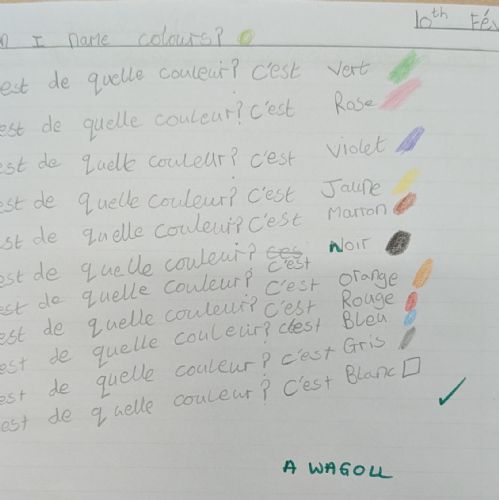 10th Fév
I name colours?
est de quelle couleur? C'est Vert
est de quelle couleur? C'est Rose
est de quelle couleur? C'est Violet
est de quelle couleur? C'est Jaune
est de quelle couleur? C'est Marron
est de quelle couleur? ces C'est Noir
est de quelle couleur? C'est Orange
est de quelle couleur? C'est Rouge
est de quelle couleur? c'est Bleu
est de quelle couleur? C'est Gris
est de quelle couleur? C'est Blanc
A WAGOLL